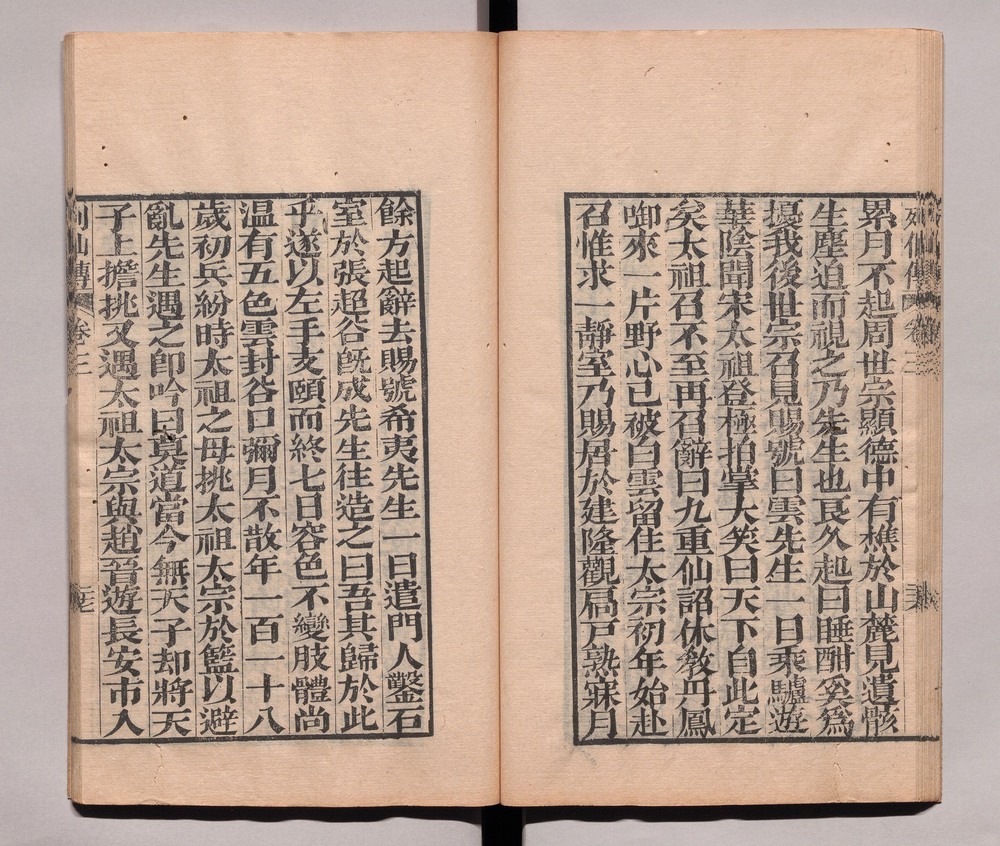 累月不起周世宗顯德中有樵於山麓見遺骸
生塵迫而視之乃先生也良久起曰睡酣奚爲
擾我後世宗召見賜號曰雲先生一日乘驢遊
華陰聞宋太祖登極拍掌大笑曰天下自此定
矣太祖召不至再召辭曰九重仙詔休教丹鳳
啣來一片野心已被白雲留住太宗初年始赴
召惟求一靜室乃賜居於建隆觀扃戸熟寐月
餘方起辭去賜號希夷先生一日遣門人鑿石
室於張超谷旣成先生往造之曰吾其歸於此
乎遂以左手支頤而終七日容色不變肢體尚
温有五色雲封谷口彌月不散年一百一十八
歲初兵紛時太祖之母挑太祖太宗於籃以避
亂先生遇之卽吟曰莫道當今無天子却將天
子上擔挑又遇太祖太宗與趙晉遊長安市入
列仙傳 卷三